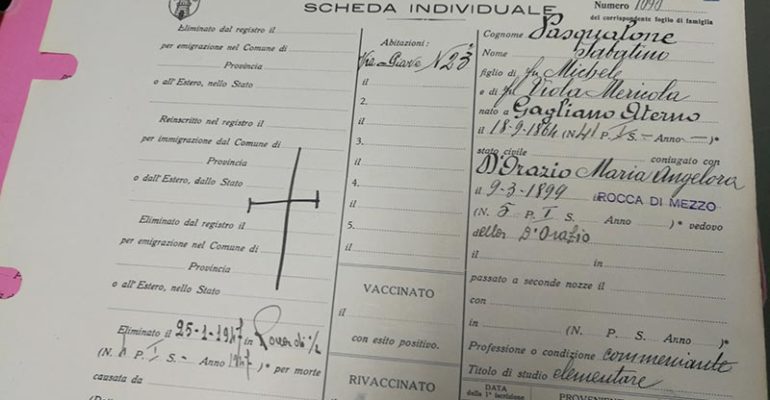 SCHEDA INDIVIDUALE
Numero 1090
del corrispondente foglio di famiglia
Eliminato dal registro il
per emigrazione nel Comune di
Provincia
o all'Estero, nello Stato
Reinscritto nel registro il
per immigrazione dal Comune di
Provincia
o dall'Estero, dallo Stato
Eliminato dal registro il
per emigrazione nel Comune di
Provincia
o all'Estero, nello Stato
Eliminato il 25-1-1947 in
(N. P. I S. - Anno 1947)* per morte
causata da
Abitazioni:
N 23
il
2.
il
3.
il
4.
il
5.
il
VACCINATO
il
con esito positivo.
RIVACCINATO
Cognome Pasqualone
Nome Sabatino
figlio di fu Michele
e di fu Viola Mericola
nato a Gagliano Aterno
il 18-9-1864 (N. 41 P. I S. - Anno -)*
stato civile coniugato con
D'Orazio Maria Angelora
il 9-3-1899 in ROCCA DI MEZZO
(N. 5 P. I S. Anno )* vedovo
della D'Orazio
il in
passato a seconde nozze il
con
in (N. P. S. Anno
Professione o condizione commerciante
Titolo di studio elementare
DATA
della 1ª iscrizione